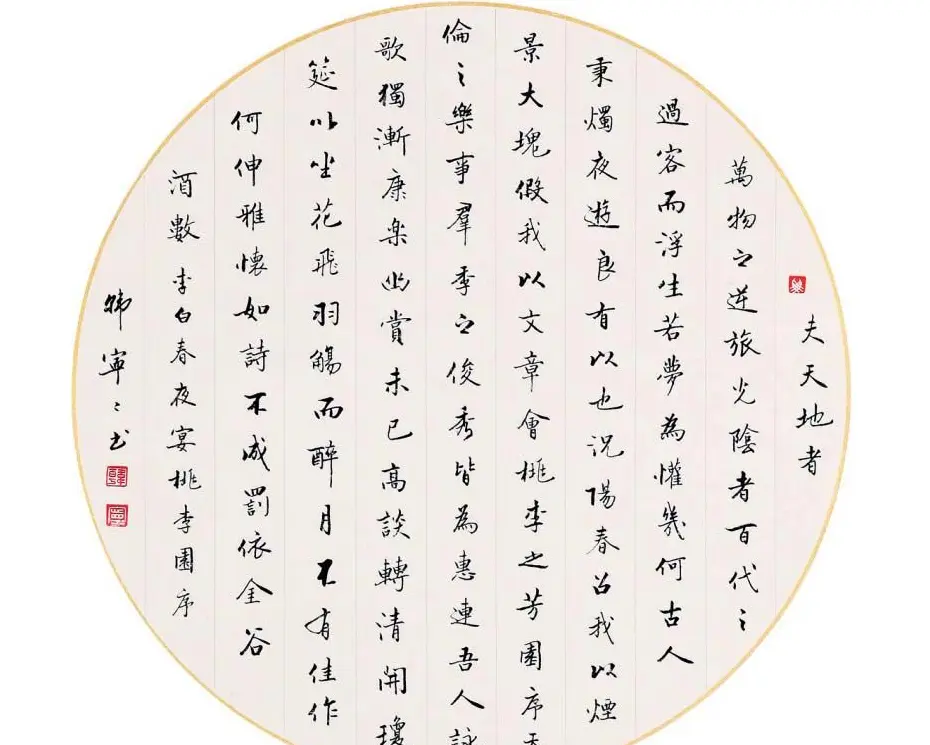 夫天地者
萬物之逆旅光陰者百代之
過客而浮生若夢為懽幾何古人
秉燭夜遊良有以也況陽春召我以煙
景大塊假我以文章會桃李之芳園序天
倫之樂事羣季之俊秀皆為惠連吾人詠
歌獨漸康楽幽賞未已高談轉清開瓊
筵以坐花飛羽觴而醉月不有佳作
何伸雅懷如詩不成罰依金谷
酒數 李白春夜宴桃李園序
韩寧〻书